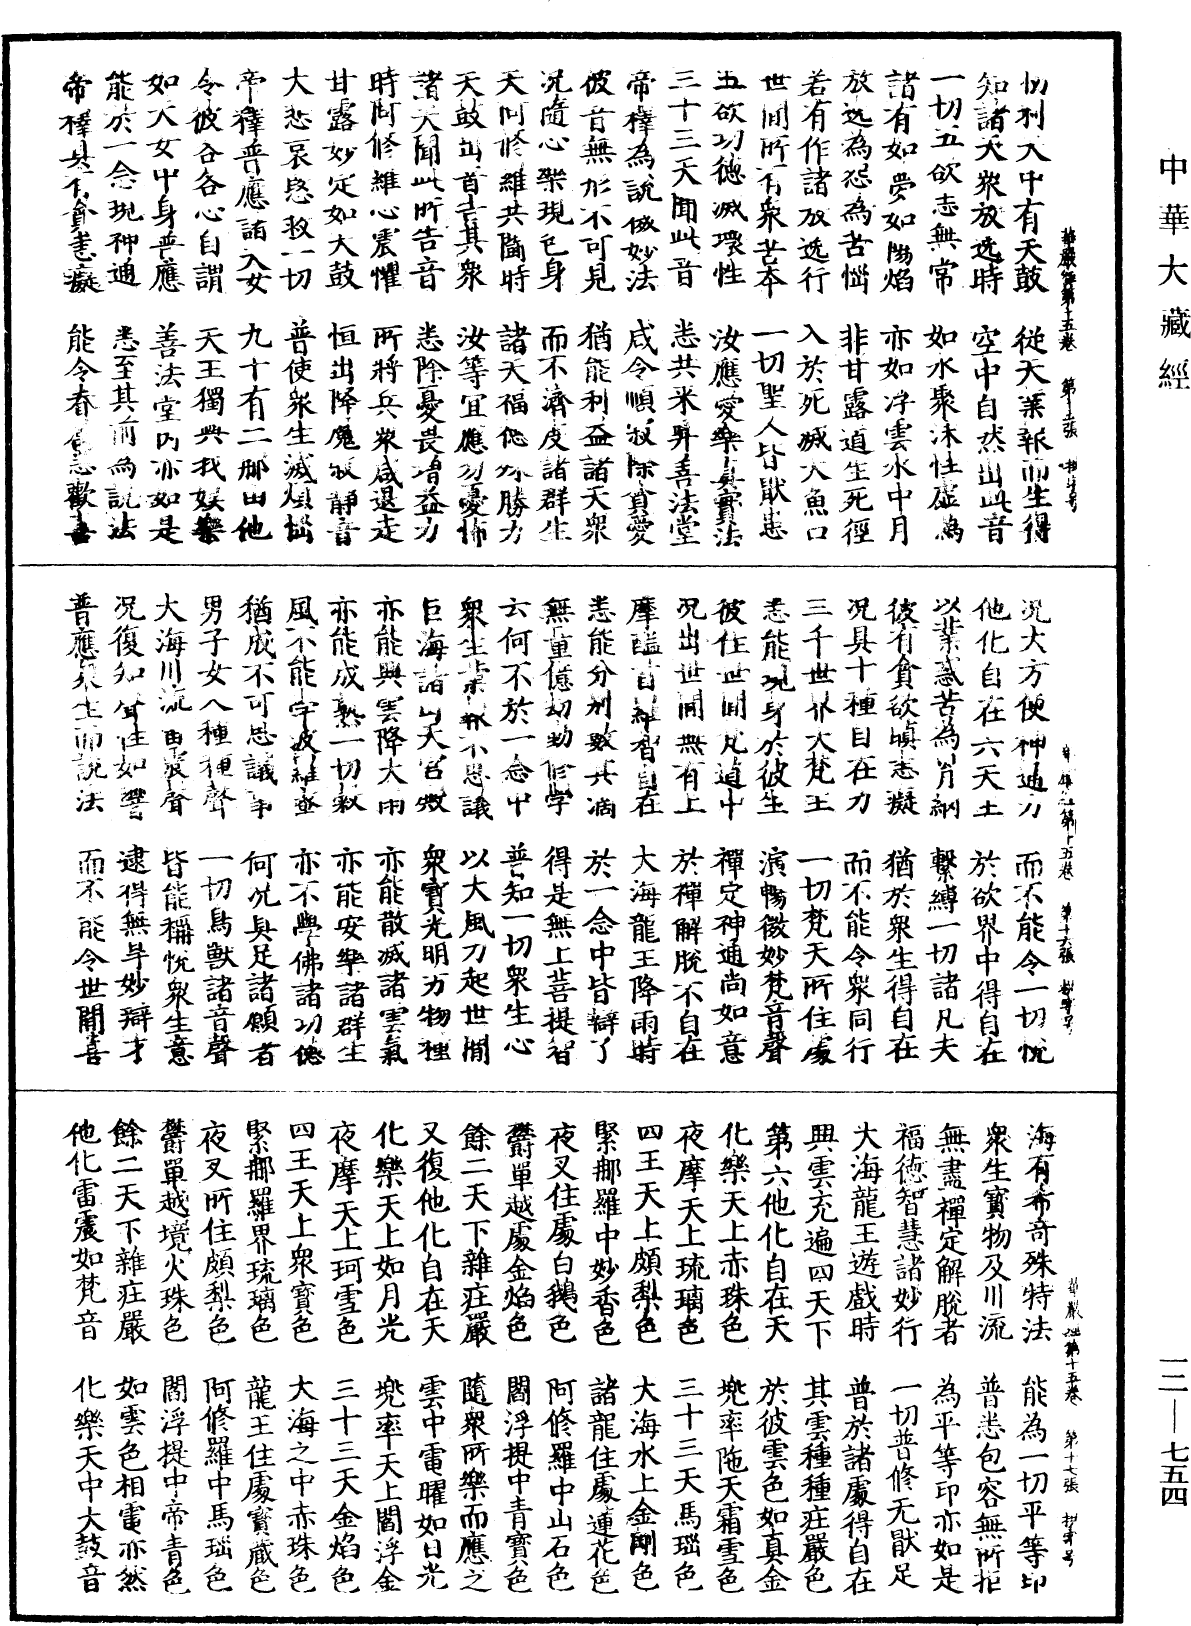 中華大藏經
忉利天中有天鼓　從天業報而生得
知諸天衆放逸時　空中自然出此音
一切五欲悉無常　如水聚沫性虛僞
諸有如夢如陽焰　亦如浮雲水中月
放逸為怨為苦惱　非甘露道生死徑
若有作諸放逸行　入於死滅大魚口
世間所有衆苦本　一切聖人皆猒患
五欲功德滅壞性　汝應愛樂真實法
三十三天聞此音　悉共来昇善法堂
帝釋為說微妙法　咸令順寂除貪愛
彼音無形不可見　猶能利益諸天衆
況隨心樂現色身　而不濟度諸群生
天阿修羅共鬪時　諸天福德殊勝力
天鼓出音告其衆　汝等宜應勿憂怖
諸天聞此所告音　悉除憂畏增益力
時阿修羅心震懼　所將兵衆咸退走
甘露妙定如天鼓　恒出降魔寂靜音
大悲哀愍救一切　普使衆生滅煩惱
帝釋普應諸天女　九十有二那由他
令彼各各心自謂　天王獨與我娛樂
如天女中身普應　善法堂內亦如是
能於一念現神通　悉至其前為說法
帝釋具有貪恚癡　能令眷屬悉歡喜
況大方便神通力　而不能令一切悅
他化自在六天王　於欲界中得自在
以業惑苦為罥網　繫縛一切諸凡夫
彼有貪欲瞋恚癡　猶於衆生得自在
況具十種自在力　而不能令衆同行
三千世界大梵王　一切梵天所住處
悉能現身於彼坐　演暢微妙梵音聲
彼住世間梵道中　禪定神通尚如意
況出世間無有上　於禪解脫不自在
摩醯首羅智自在　大海龍王降雨時
悉能分別數其滴　於一念中皆辯了
無量億劫勤修學　得是無上菩提智
云何不於一念中　普知一切衆生心
衆生業報不思議　以大風力起世間
巨海諸山天宮殿　衆寶光明万物種
亦能興雲降大雨　亦能散滅諸雲氣
亦能成熟一切穀　亦能安樂諸群生
風不能學波羅蜜　亦不學佛諸功德
猶成不可思議事　何況具足諸願者
男子女人種種聲　一切鳥獸諸音聲
大海川流雷震聲　皆能稱悅衆生意
況復知聲性如響　逮得無㝵妙辯才
普應衆生而說法　而不能令世間喜
海有希奇殊特法　能為一切平等印
衆生寶物及川流　普悉包容無所拒
無盡禪定解脫者　為平等印亦如是
福德智慧諸妙行　一切普修无猒足
大海龍王遊戲時　普於諸處得自在
興雲充遍四天下　其雲種種莊嚴色
第六他化自在天　於彼雲色如真金
化樂天上赤珠色　兜率陁天霜雪色
夜摩天上琉璃色　三十三天馬瑙色
四王天上頗梨色　大海水上金剛色
緊那羅中妙香色　諸龍住處蓮花色
夜叉住處白鵝色　阿修羅中山石色
欝單越處金焰色　閻浮提中青寶色
餘二天下雜莊嚴　隨衆所樂而應之
又復他化自在天　雲中電曜如日光
化樂天上如月光　兜率天上閻浮金
夜摩天上珂雪色　三十三天金焰色
四王天上衆寶色　大海之中赤珠色
緊那羅界琉璃色　龍王住處寶藏色
夜叉所住頗梨色　阿修羅中馬瑙色
欝單越境火珠色　閻浮提中帝青色
餘二天下雜莊嚴　如雲色相電亦然
他化雷震如梵音　化樂天中大鼓音
華嚴經第十五卷　第十五張
華嚴經第十五卷　第十六張
華嚴經第十五卷　第十七張
一二—七五四